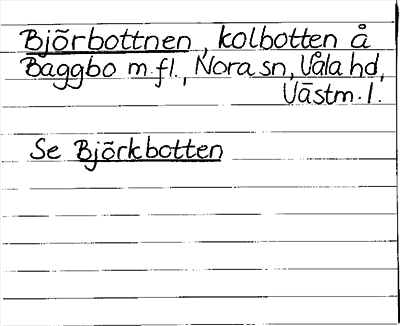 Björbottnen, kolbotten å
Baggbo m.fl., Nora sn, Våla hd,
Västm. l.
Se Björkbotten